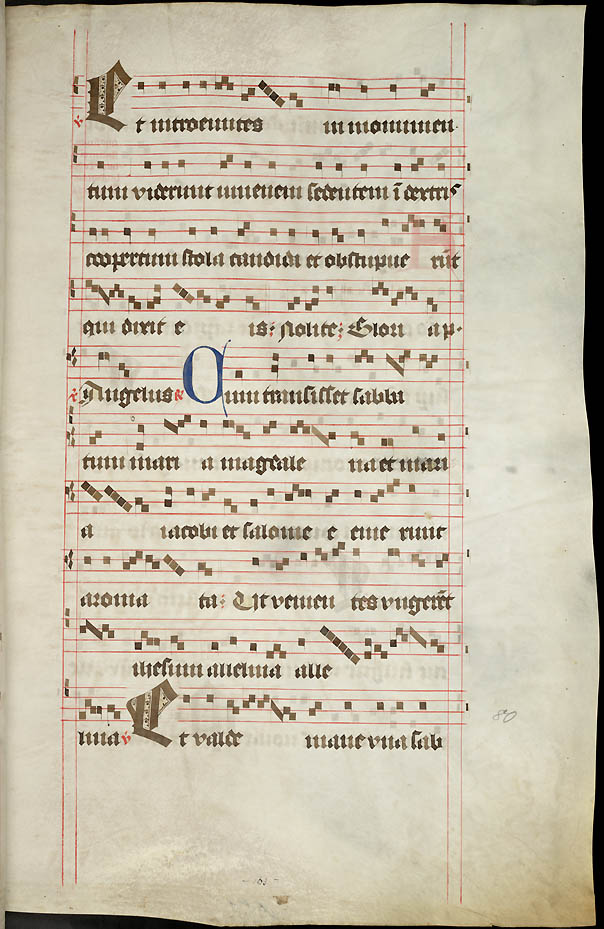 ℣ Et introeuntes in monumen
tum viderunt iuuenem sedentem ī dextris
coopertum stola candida et obstupue rūt
qui dixit e is: Nolite; Glori a p.
℣ Angelus ℟ Cum transisset sabba
tum mari a magdale na et mari
a iacobi et salome e eme runt
aroma ta: Ut venien tes vngerēt
ihesum alleluia alle
luia ℣ Et valde mane vna sab
80